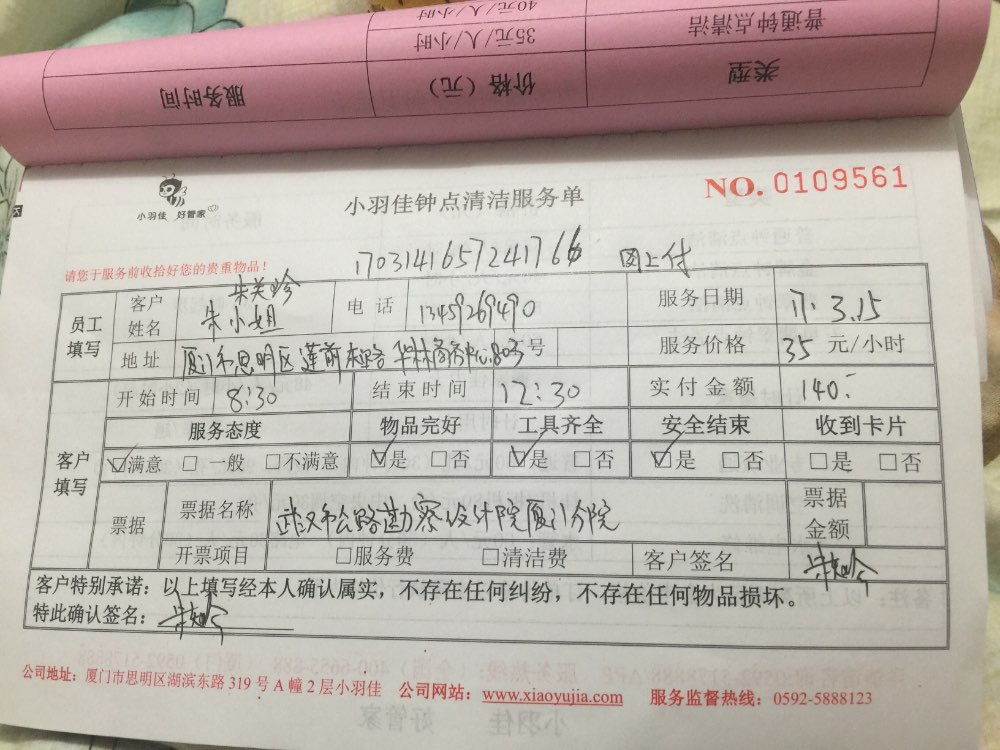 40元/人/小时
35元/人/小时 普通钟点清洁
服务时间 价格（元） 类型
小羽佳 好管家
小羽佳钟点清洁服务单
NO. 0109561
请您于服务前收拾好您的贵重物品！
1703141657241766 网上付
员工填写 客户姓名 朱美珍 朱小姐 电话 13459269490 服务日期 17.3.15
地址 厦门市思明区莲前 路华林商务中心803号 服务价格 35 元/小时
开始时间 8:30 结束时间 12:30 实付金额 140.-
客户填写 服务态度 物品完好 工具齐全 安全结束 收到卡片
☑满意 □一般 □不满意 ☑是 □否 ☑是 □否 ☑是 □否 □是 □否
票据 票据名称 武汉市公路勘察设计院厦门分院 票据金额
开票项目 □服务费 □清洁费 客户签名
客户特别承诺：以上填写经本人确认属实，不存在任何纠纷，不存在任何物品损坏。
特此确认签名：
公司地址：厦门市思明区湖滨东路 319 号 A 幢 2 层小羽佳 公司网站：www.xiaoyujia.com 服务监督热线：0592-5888123